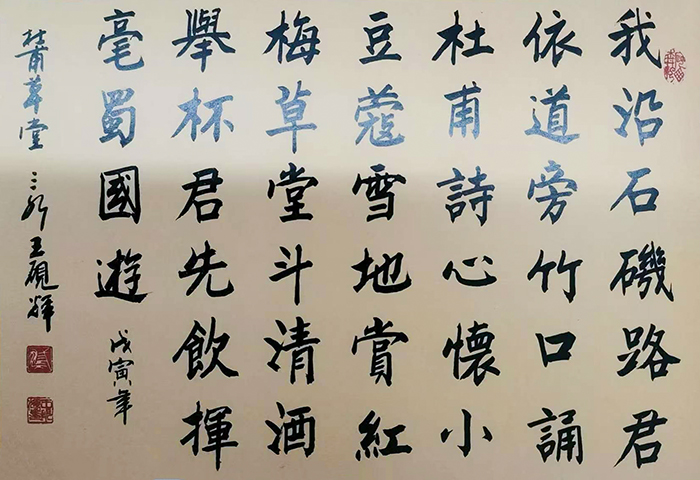 我沿石磯路君
依道旁竹口誦
杜甫詩心懷小
豆蔻雪地賞紅
梅草堂斗清酒
舉杯君先飲揮
毫蜀國遊
戊寅年
杜甫草堂 王硯